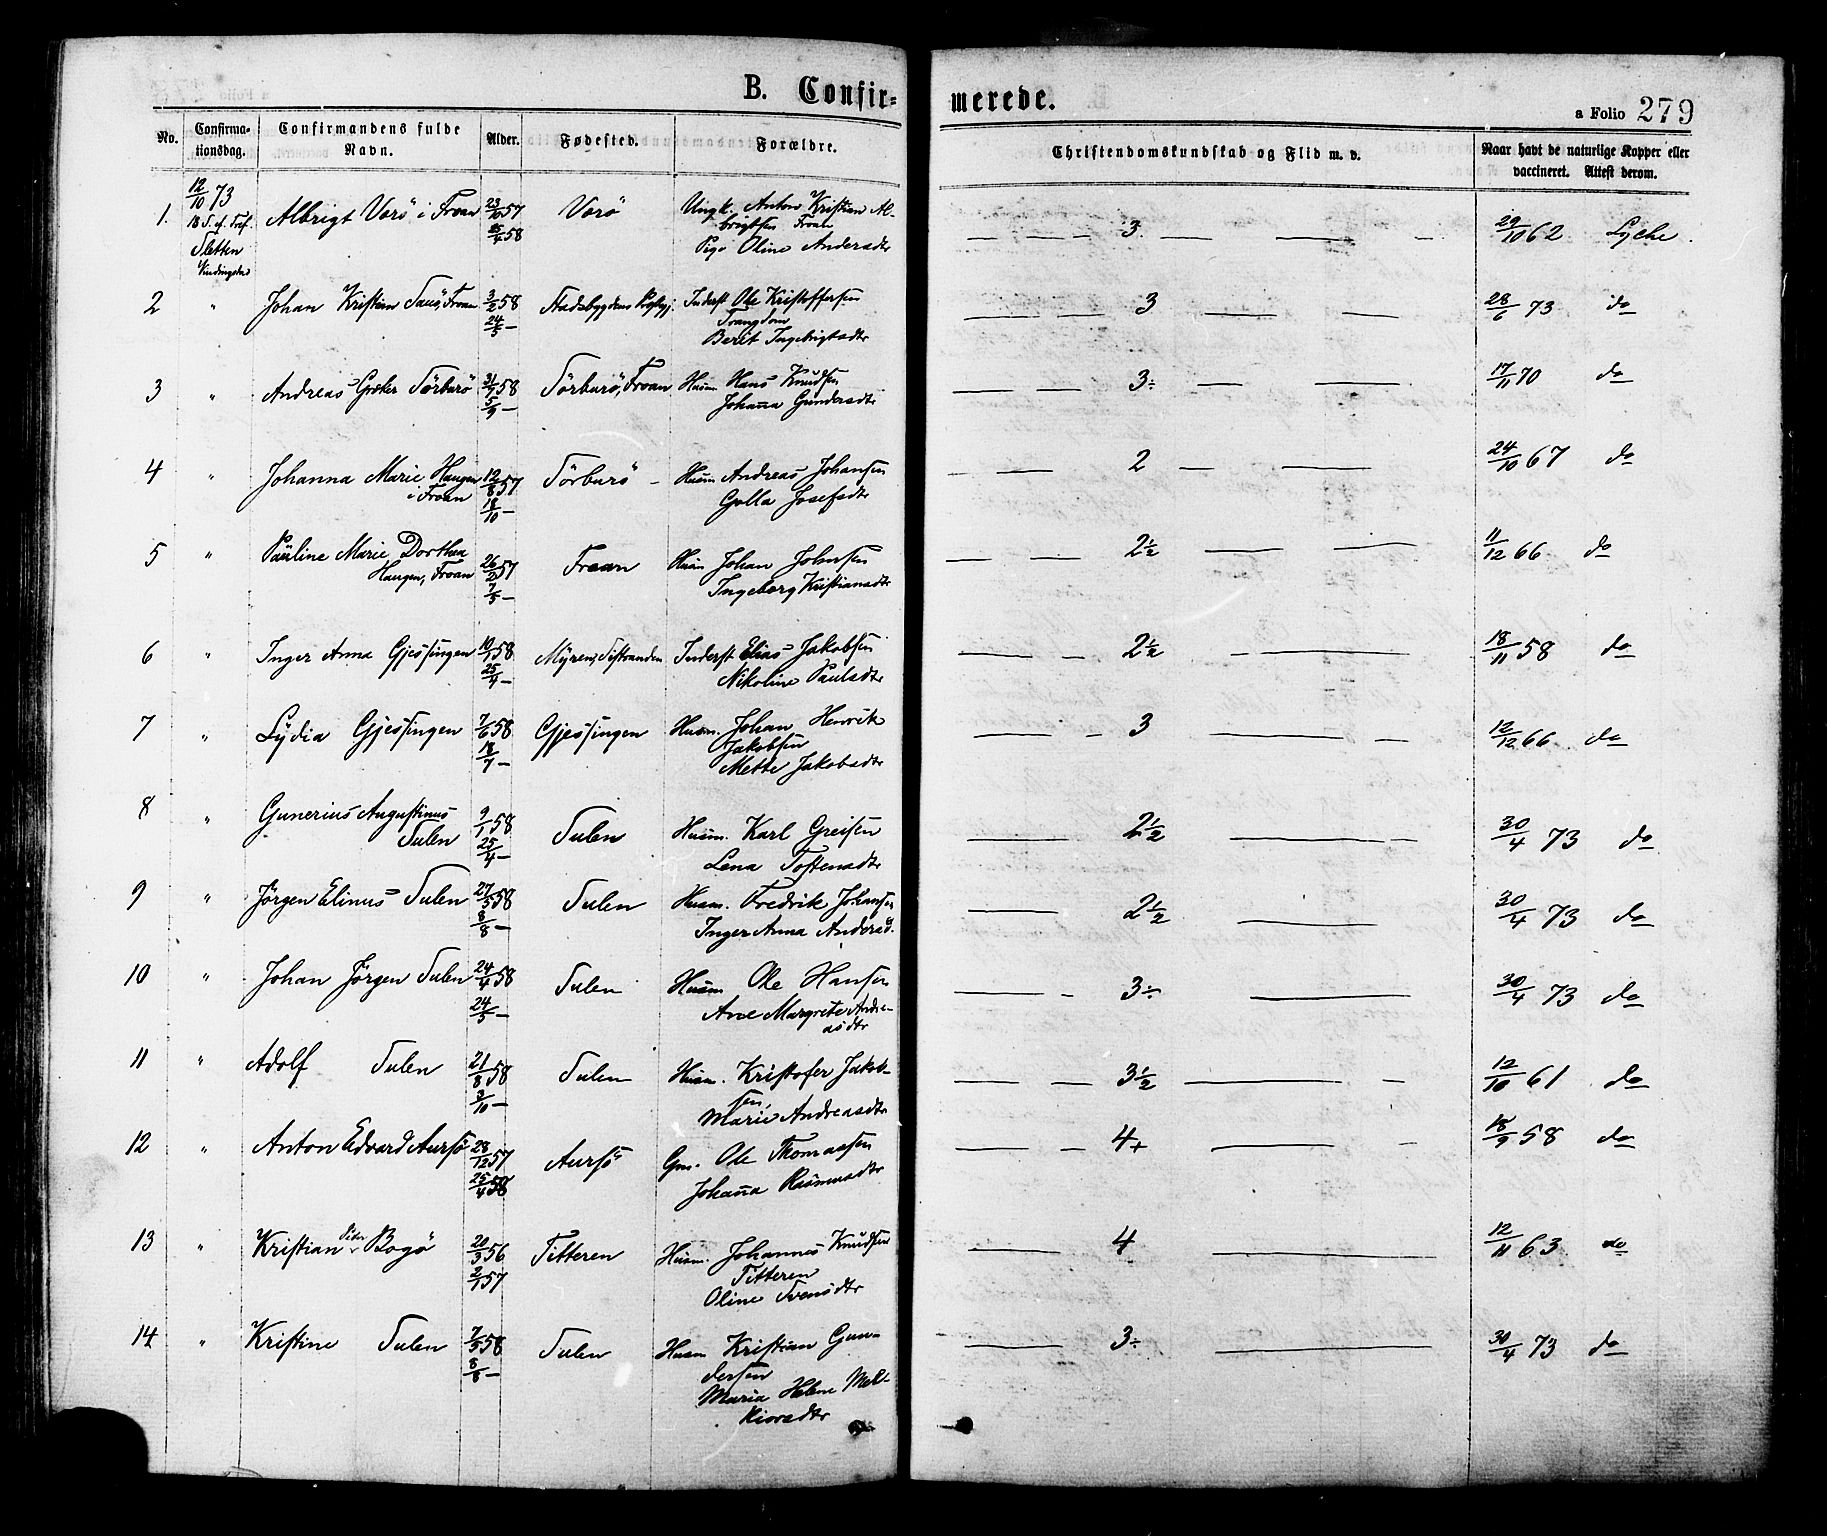 B. Confir-
merede.
a Folio 279
No. Confirma-tionsdag. Confirmandens fulde Navn. Alder. Fødested. Forældre. Christendomskundskab og Flid m. v. Naar havt de naturlige Kopper eller vaccineret. Attest derom.
12/10 73
1. 13 S. ef. Tref. Albrigt Vorö i Froan 23/10 57 Vorö Ungk. Anton Kristian Al-
Sletten 25/4 58 brigtsen Froan
Pige Oline Andersdtr 3 29/10 62 Lyche.
2 " Johan Kristian Sauö, Froan 3/2 58 Stadsbygdens Prgj. Inderst Ole Kristoffersen
24/5 — Trangdom
Berit Ingebrigtsdtr 3 28/6 73 do
3 " Andreas Grøter Sörburö 31/7 58 Sörburö, Froan Husm Hans Knudsen
5/9 — Johanna Gundersdtr 3÷ 17/11 70 do
4 " Johanna Marie Haugen 12/8 57 Sörburö – Husm Andreas Johansen
i Froan 18/10 — Golla Josefsdtr 2 24/10 67 do
5 " Pauline Marie Dorthea 26/2 57 Froan Husm Johan Johnsen
Haugen, Froan 7/5 — Ingeborg Kristiansdtr 2½ 11/12 66 do
6 " Inger Anna Gjessingen 10/1 58 Myren, Sistranden Inderst Elias Jakobsen
25/4 — Nikoline Paulsdtr 2½ 18/11 58 do
7 " Lydia Gjessingen 7/6 58 Gjessingen Husm. Johan Henrik
18/7 — Jakobsen
Mette Jakobsdtr 3 12/12 66 do
8 " Gunerius Augustinus
Sulen 9/1 58 Sulen Husm. Karl Greisen
25/4 — Lena Tostensdtr 2½ 30/4 73 do
9 " Jörgen Elinus Sulen 27/5 58 Sulen Husm. Fredrik Johansen
8/8 — Inger Anna Andersd. 2½ 30/4 73 do
10 " Johan Jörgen Sulen 24/4 58 Sulen Husm Ole Hansen
24/5 — Ane Margrete Andre-
asdtr 3÷ 30/4 73 do
11 " Adolf Sulen 21/8 58 Sulen Husm. Kristofer Jakob-
3/10 — sen,
Marie Andreasdtr 3½ 12/10 61 do
12 " Anton Edvard Aursö 28/12 57 Aursö Gm. Ole Thomassen
25/4 58 Johanna Rasmusdtr 4+ 18/9 58 do
13 " Kristian Peter Bogö 20/3 56 Titteren Husm. Johannes Knudsen
2/1 57 Titteren
Oline Svensdtr 4 12/11 63 do
14 " Kristine Sulen 7/5 58 Sulen Husm Kristian Gun-
8/8 — dersen
Maria Helene Mel-
kiorsdtr 3÷ 30/4 73 do